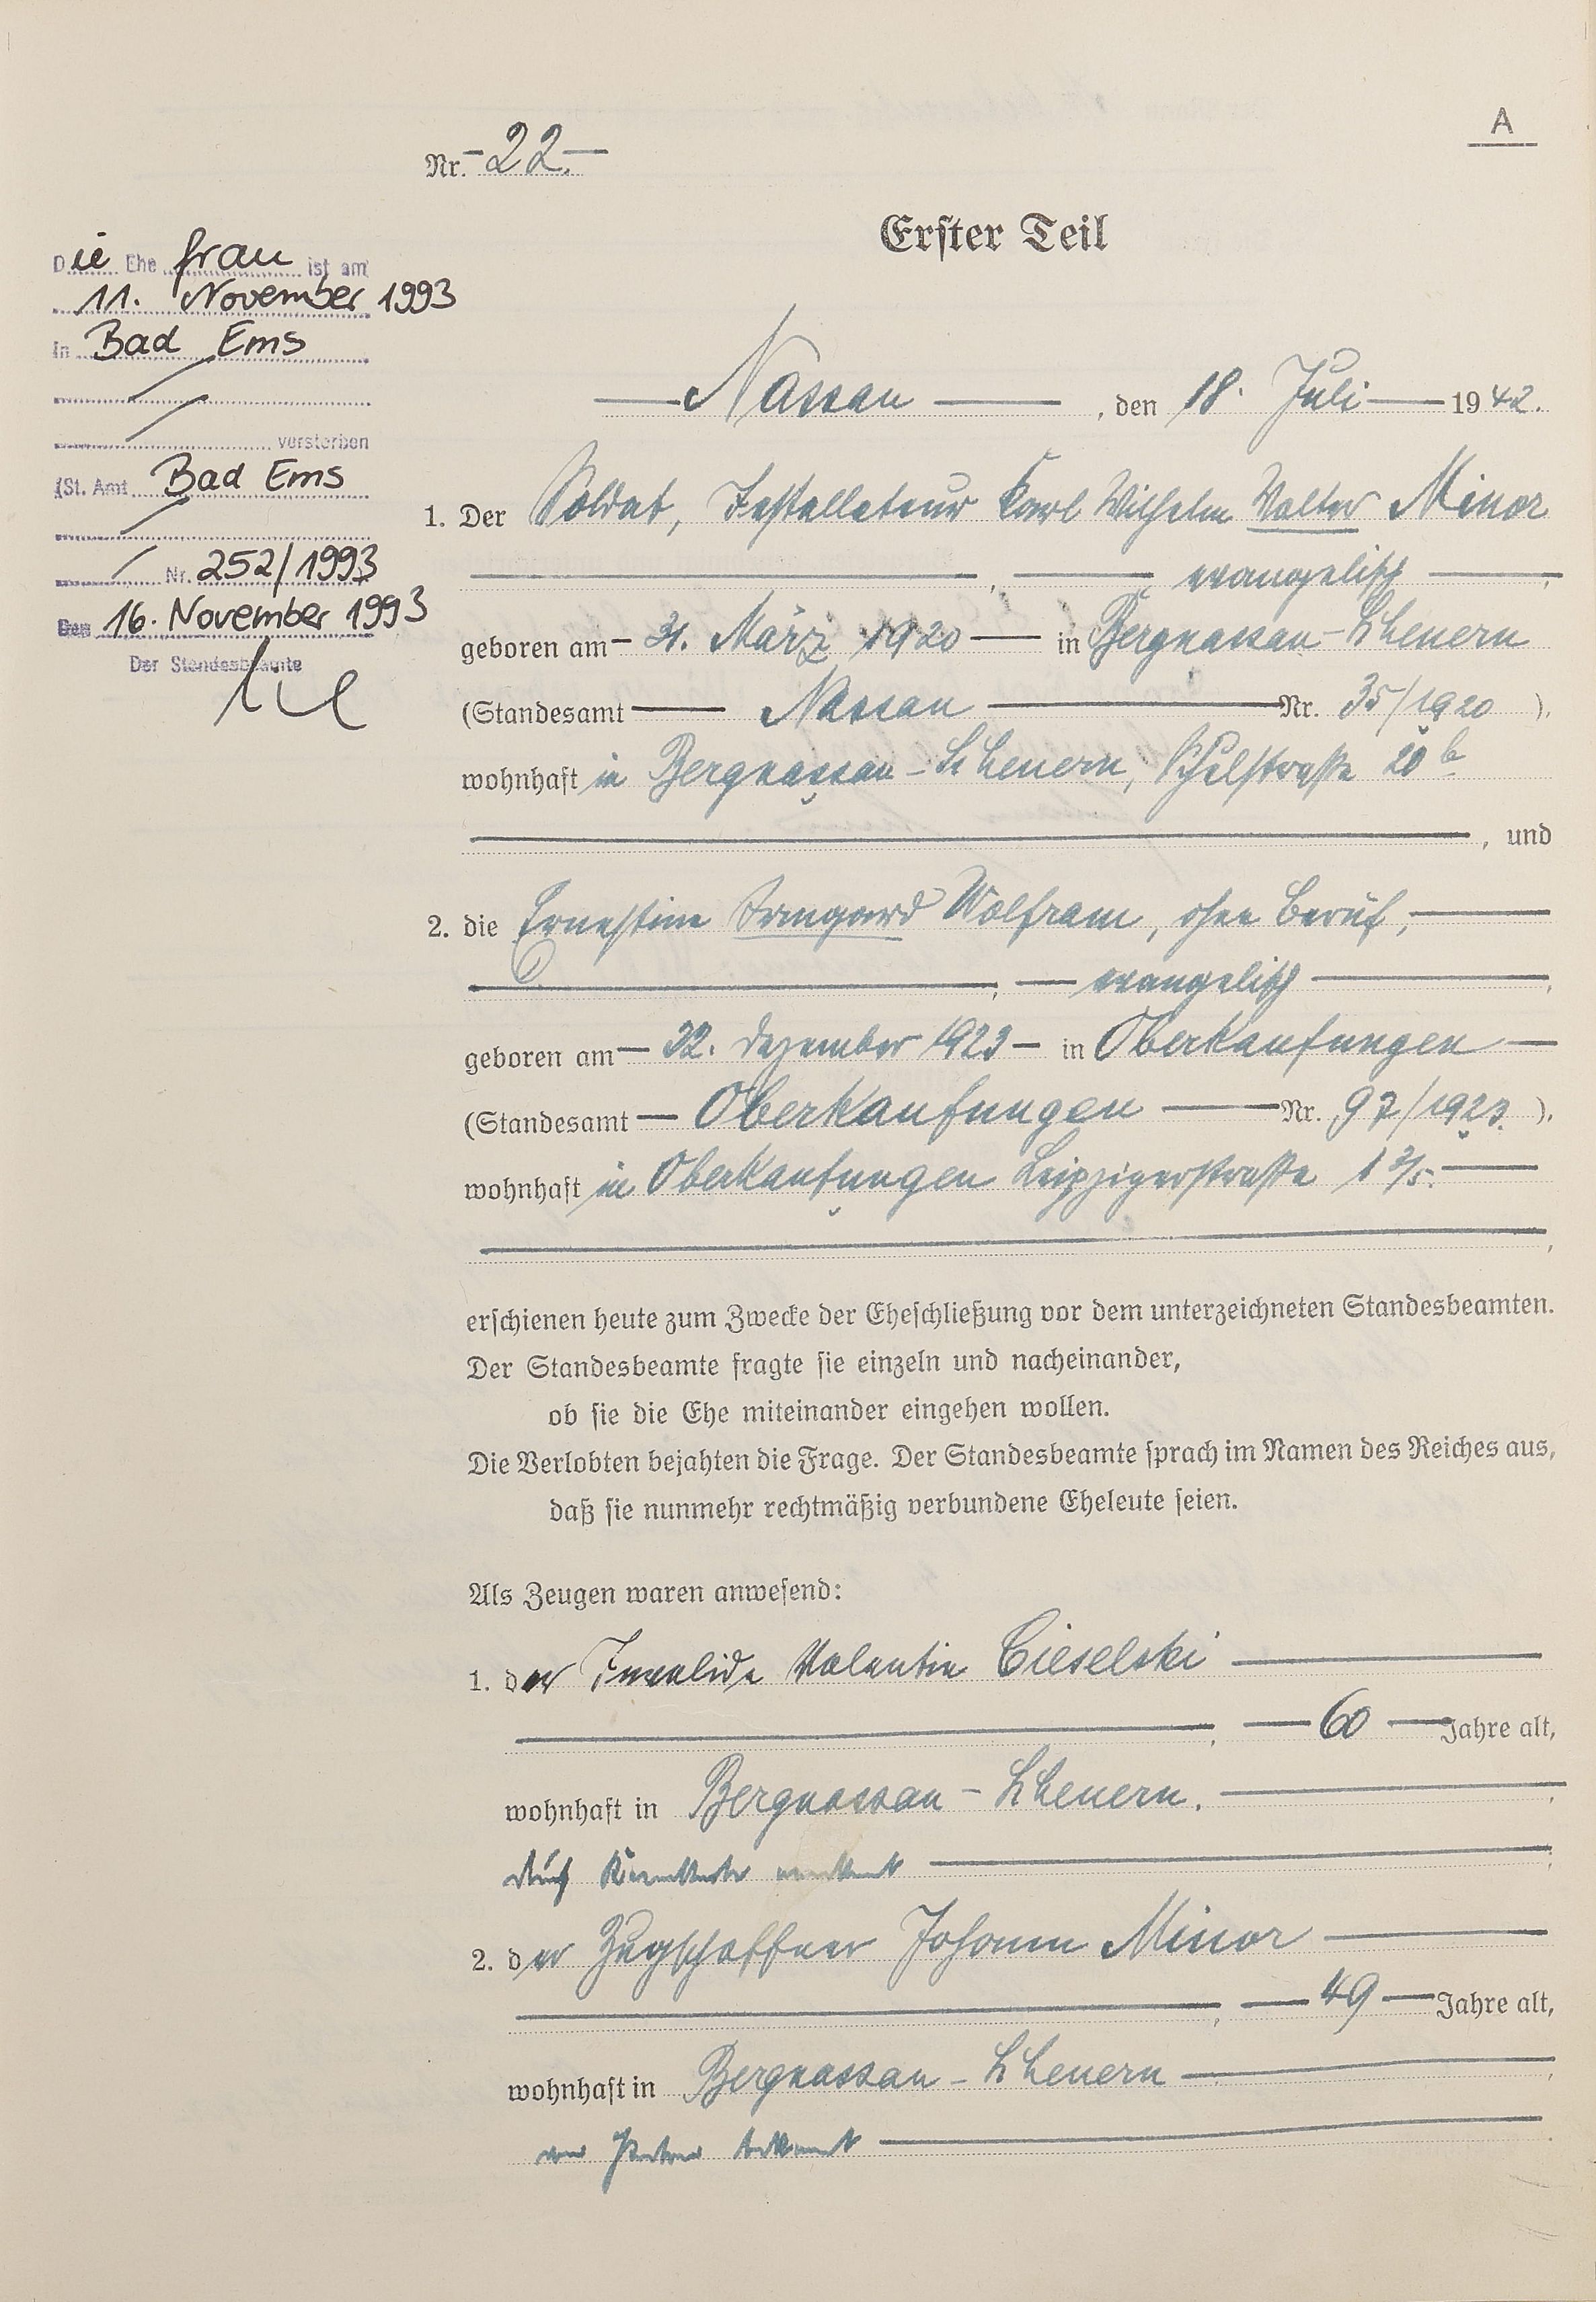 A
Nr. 22.
Erster Teil
Die Ehefrau ist am
11. November 1993
in Bad Ems
verstorben
(St. Amt Bad Ems
Nr. 252/1993)
Den 16. November 1993
Der Standesbeamte
Nassau, den 18. Juli 1942.
1. Der Soldat, Installateur Karl Wilhelm Walter Minor
, evangelisch,
geboren am 31. März 1920 in Bergnassau-Scheuern
(Standesamt Nassau Nr. 35/1920).
wohnhaft in Bergnassau-Scheuern, Schulstraße 20 b
, und
2. die Ernestine Irmgard Wolfram, ohne Beruf,
, evangelisch,
geboren am 22. Dezember 1923 in Oberkaufungen
(Standesamt Oberkaufungen Nr. 97/1923).
wohnhaft in Oberkaufungen Leipzigerstraße
erschienen heute zum Zwecke der Eheschließung vor dem unterzeichneten Standesbeamten.
Der Standesbeamte fragte sie einzeln und nacheinander,
ob sie die Ehe miteinander eingehen wollen.
Die Verlobten bejahten die Frage. Der Standesbeamte sprach im Namen des Reiches aus,
daß sie nunmehr rechtmäßig verbundene Eheleute seien.
Als Zeugen waren anwesend:
1. der Invalide Valentin Cieselski
, 60 Jahre alt,
wohnhaft in Bergnassau-Scheuern.
durch
2. der Zugschaffner Johann Minor
, 49 Jahre alt,
wohnhaft in Bergnassau-Scheuern
bekannt